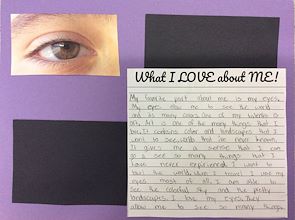 What I LOVE about ME!
My favorite part about me is my eyes.
My eyes allow me to see the world
and its many colors. One of my interests is
art. Art is one of the many things that I
love. It contains color and landscapes that I
want to see, worlds that I've never known.
It gives me a sense that I can
go & see so many things that I
have never experienced. I want to
travel the world. When I travel I use my
eyes most of all. I am able to
see the colorful sky and the pretty
landscapes. I love my eyes. They
allow me to see so many things.